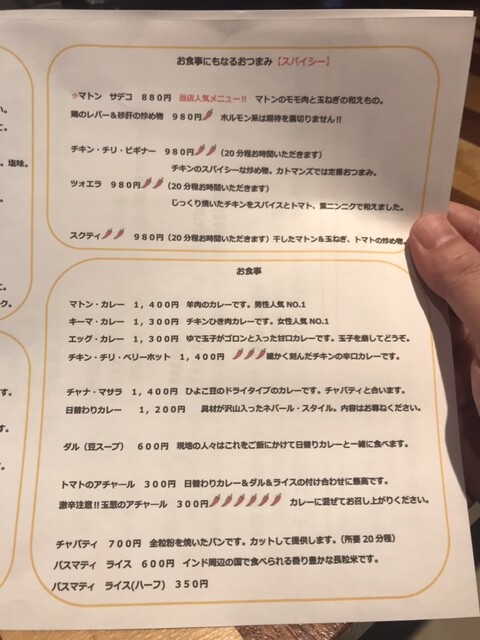 お食事にもなるおつまみ【スパイシー】
☆マトン サデコ 880円 当店人気メニュー!! マトンのモモ肉と玉ねぎの和えもの。
鶏のレバー＆砂肝の炒め物 980円 ホルモン系は期待を裏切りません!!
チキン・チリ・ビギナー 980円 (20分程お時間いただきます)
チキンのスパイシーな炒め物。カトマンズでは定番おつまみ。
ツォエラ 980円 (20分程お時間いただきます)
じっくり焼いたチキンをスパイスとトマト、葉ニンニクで和えました。
スクティ 980円 (20分程お時間いただきます) 干したマトン＆玉ねぎ、トマトの炒め物。
お食事
マトン・カレー 1,400円 羊肉のカレーです。男性人気NO.1
キーマ・カレー 1,300円 チキンひき肉カレーです。女性人気NO.1
エッグ・カレー 1,300円 ゆで玉子がゴロンと入った甘口カレーです。玉子を崩してどうぞ。
チキン・チリ・ベリーホット 1,400円 細かく刻んだチキンの辛口カレーです。
チャナ・マサラ 1,400円 ひよこ豆のドライタイプのカレーです。チャパティと合います。
日替わりカレー 1,200円 具材が沢山入ったネパール・スタイル。内容はお尋ねください。
ダル（豆スープ） 600円 現地の人々はこれをご飯にかけて日替りカレーと一緒に食べます。
トマトのアチャール 300円 日替わりカレー＆ダル＆ライスの付け合わせに最高です。
激辛注意!!玉葱のアチャール 300円 カレーに混ぜてお召し上がりください。
チャパティ 700円 全粒粉を焼いたパンです。カットして提供します。（所要20分程）
バスマティ ライス 600円 インド周辺の国で食べられる香り豊かな長粒米です。
バスマティ ライス(ハーフ) 350円
塩味。
ク。